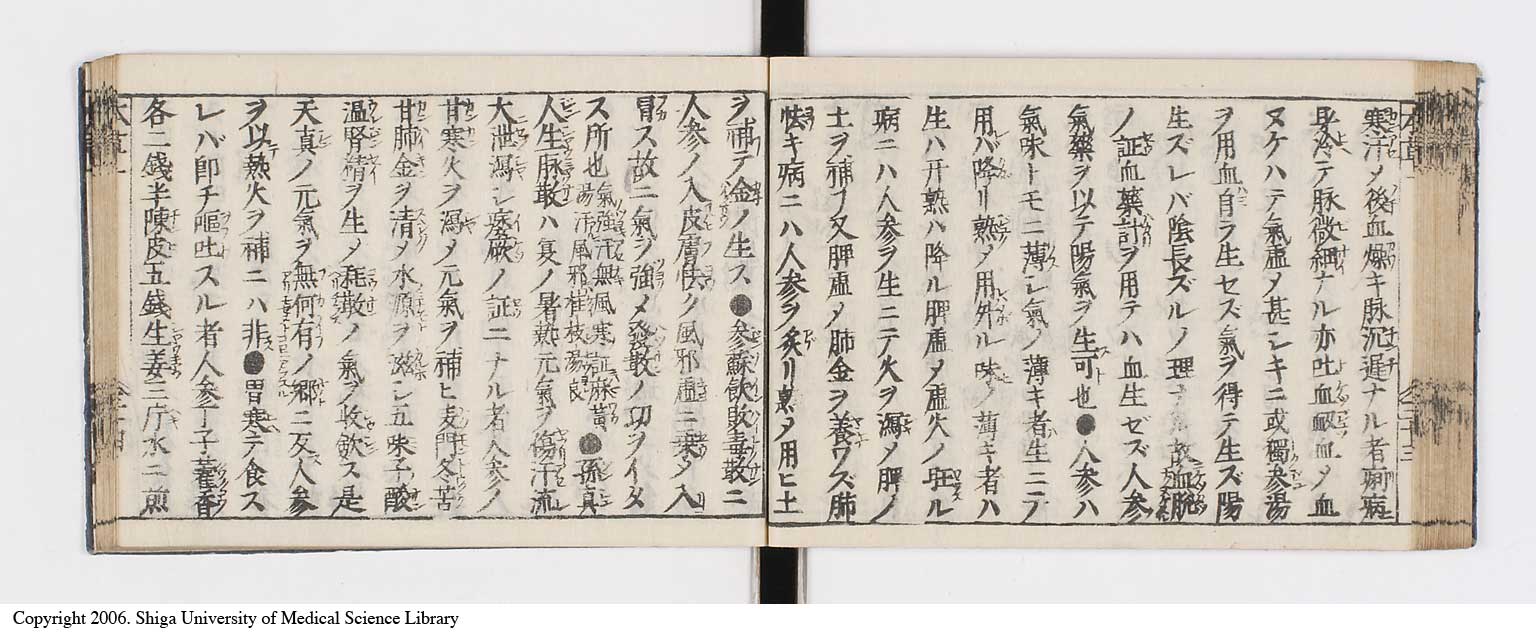 寒汗メ後血燥キ脉沉遅ナル者痢病
身冷テ脉微細ナル亦吐血衂血メ血
ヌケハテ氣虚メ甚シキニ或獨参湯
ヲ用血自ラ生セズ氣ヲ得テ生ズ陽
生ズレバ陰長ズルノ理 故血脱
ノ証血藥計ヲ用テハ血生ゼズ人参
氣藥ヲ以テ陽氣ヲ生可也●人参ハ
氣味トモニ薄シ氣ノ薄キ者生ニテ
用バ降リ熟メ用外ル味ノ薄キ者ハ
生ハ升熟ハ降ル脾虚メ虚火ノ旺ル
病ニハ人参ヲ生ニテ火ヲ瀉メ脾ノ
土ヲ補フ又脾虚メ肺金ヲ養ワズ肺
怯キ病ニハ人参ヲ炙リ熟メ用ヒ土
ヲ補テ金ノ生ス●参蘇飲敗毒散ニ
人参ノ入皮膚怯ク風邪虚ニ乗メ入
冒ス故ニ氣ヲ強メ發散ノ功ヲイタ
ス所也氣強汗無風寒証麻黄湯汗風邪桂枝湯良●孫真
人生脉散ハ夏ノ暑熱元氣ヲ傷汗流
大泄瀉シ痿厥ノ証ニナル者人参ノ
甘寒火ヲ瀉メ元氣ヲ補ヒ麦門冬苦
甘肺金ヲ清メ水源ヲ滋シ五味子酸
温腎精ヲ生メ耗散ノ氣ヲ收斂ス是
天真ノ元氣ヲ無何有ノ郷ニ反人参
ヲ以熱火ヲ補ニハ非●胃寒テ食ス
レバ即チ嘔吐スル者人参丁子藿香
各二錢半陳皮五錢生姜三片水ニ煎
Copyright 2006. Shiga University of Medical Science Library